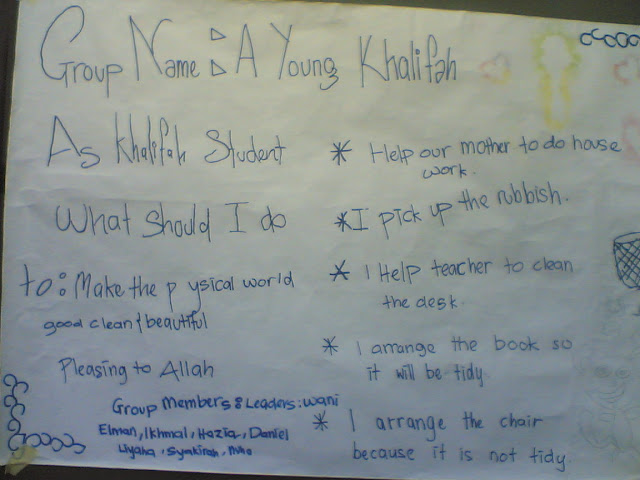 Group Name : A Young Khalifah
As Khalifah Student
What should I do
to: Make the p ysical world
good clean & beautiful
Pleasing to Allah
Group Members & Leaders: wani
Elman, Ikhmal, Haziq, Daniel
Liyana,
* Help our mother to do house
work.
* I pick up the rubbish.
* I Help teacher to clean
the desk.
* I arrange the book so
it will be tidy
* I arrange the chair
because it is not tidy.